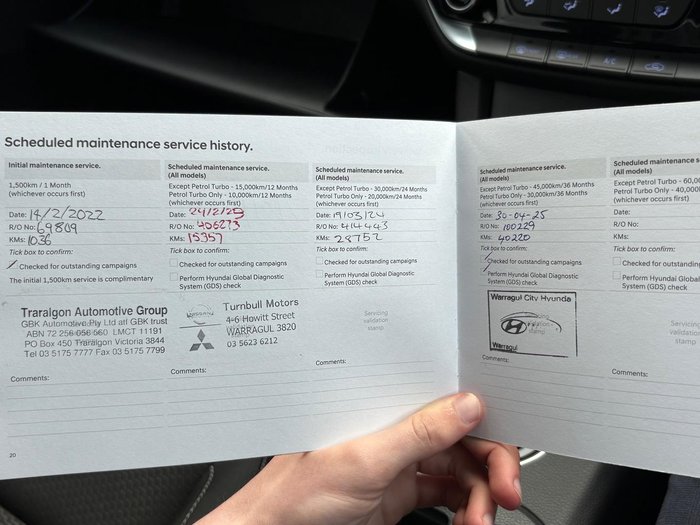 Scheduled maintenance service history.
Initial maintenance service.
1,500km / 1 Month
(whichever occurs first)
Date: 14/2/2022
R/O No: 69809
KMs: 1036
Tick box to confirm:
Checked for outstanding campaigns
The initial 1,500km service is complimentary
Traralgon Automotive Group
GBK Automotive Pty Ltd atf GBK trust
ABN 72 256 056 560 LMCT 11191
PO Box 450 Traralgon Victoria 3844
Tel 03 5175 7777 Fax 03 5175 7799
Comments:
20
Scheduled maintenance service.
(All models)
Except Petrol Turbo - 15,000km/12 Months
Petrol Turbo Only - 10,000km/12 Months
(whichever occurs first)
Date: 24/2/23
R/O No: 406273
KMs: 15357
Tick box to confirm:
Checked for outstanding campaigns
Perform Hyundai Global Diagnostic
System (GDS) check
NISSAN
Turnbull Motors
4-6 Howitt Street
WARRAGUL 3820
03 5623 6212
Comments:
Scheduled maintenance service.
(All models)
Except Petrol Turbo - 30,000km/24 Months
Petrol Turbo Only - 20,000km/24 Months
(whichever occurs first)
Date: 19/03/24
R/O No: 414443
KMs: 28752
Tick box to confirm:
Checked for outstanding campaigns
Perform Hyundai Global Diagnostic
System (GDS) check
Servicing
validation
stamp
Comments:
Scheduled maintenance service.
(All models)
Except Petrol Turbo - 45,000km/36 Months
Petrol Turbo Only - 30,000km/36 Months
(whichever occurs first)
Date: 30-04-25
R/O No: 100229
KMs: 40220
Tick box to confirm:
Checked for outstanding campaigns
Perform Hyundai Global Diagnostic
System (GDS) check
Warragul City Hyundai
stamp
Warragul
Comments:
Scheduled maintenance
(All models)
Except Petrol Turbo - 60,00
Petrol Turbo Only - 40,00
(whichever occurs first)
Date:
R/O No:
KMs:
Tick box to confirm:
Checked for outstanding
Perform Hyundai Global
System (GDS) check
Servicing
validation
stamp
Comments: